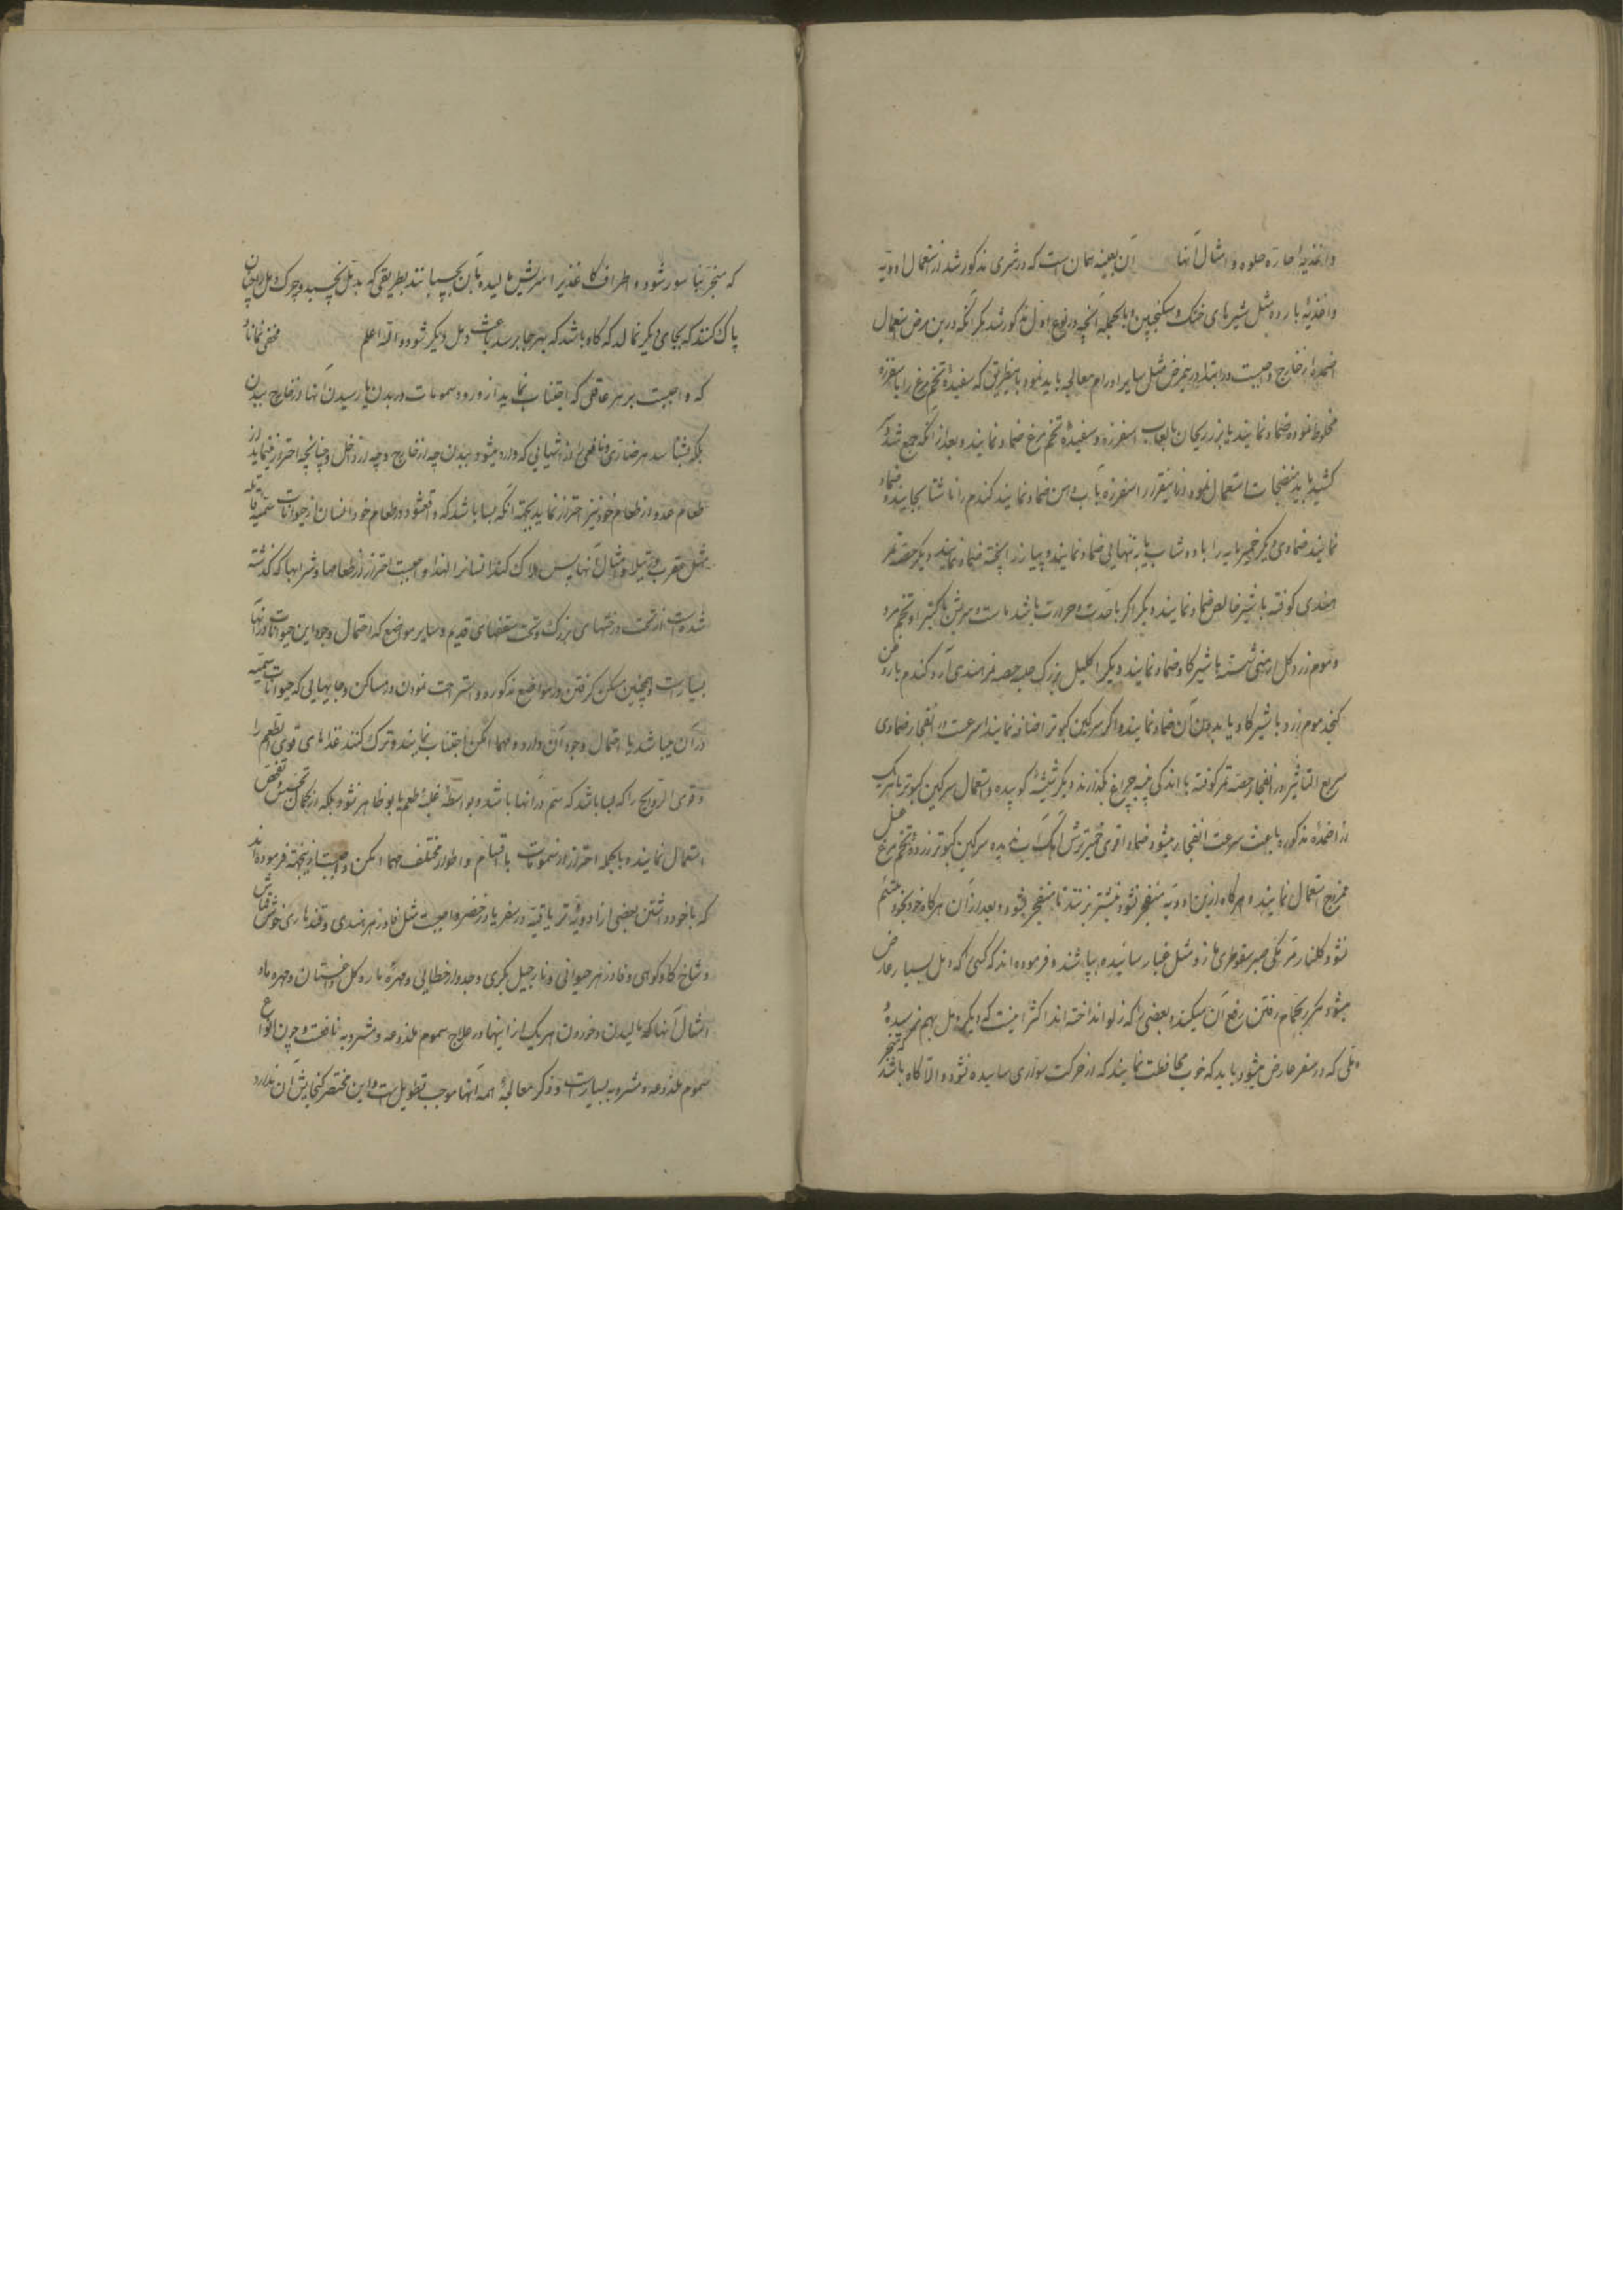 واغذیهٔ حاره حلوه و امثال آنها آن بعینه همان است که در شری مذکور شد از استعمال ادویه
واغذیهٔ بارده مثل شیرهای خنک و سکنجبین و بالجمله آنچه در نوع اول مذکور شد مگر آنکه درین مرض استعمال
اضمدهٔ از خارج واجبست و در ابتدا درینمرض مثل سایر اورام معالجه باید نمود باینطریق که سفیدهٔ تخم مرغ را با اسفرزه
مخلوط نموده ضماد نمایند یا بزر ریحان با لعاب اسفرزه و سفیدهٔ تخم مرغ ضماد نمایند و بعد از آنکه جمع شد
کشید باید منضجات استعمال نمود اسفرزه بآب دهن ضماد نمایند گندم را ناشتا بجایند و ضماد
نمایند ضمادی دیگر خمیر مایه را با دوشاب یا به تنهایی ضماد نمایند و پیاز را پخته ضماد نمایند دیگر
کوفته با شیر ضماد نمایند دیگر اگر با حدت و حرارت باشد
و موم زرد گل ارمنی شسته با شیر گاو ضماد نمایند دیگر اکلیل بزرک حلبه آرد گندم با روغن
کنجد موم زرد با شیر گاو یا بدون آن ضماد نمایند و اگر سرگین کبوتر اضافه نمایند اسرعست در انفجار ضمادی
سریع التاثیر در انفجار کوفته با اندکی پیه چراغ بگذارند دیگر شیشهٔ کوبیده و استعمال سرگین کبوتر با هریک
از اضمدهٔ مذکوره باعث سرعت انفجار میشود ضماد اقوی خمیر ترش سرگین کبوتر زردهٔ تخم مرغ عسل
ممزوج استعمال نمایند و هرگاه ازین ادویه منفجر نشود نیشتر بزنند تا منفجر شود و بعد از آن هرگاه خود بخود ملتئم
نشود گلنار صبر سقوطری مازو مثل غبار سائیده بپاشند و فرموده اند که کسی که دمل بسیار عارض
میشود مکرر بحمام رفتن رفع آن میکند و بعضی را که زلو انداخته اند اکثر اینست که دیگر دمل بهم نمیرسد
دملی که در سفر عارض میشود باید که خوب محافظت نمایند که از حرکت سواری ساییده نشود و الا گاه باشد
که منجر بناسور شود و اطراف کاغذ را سریش مالیده بآن بچسبانند بطریقی که بدمل نچسبد و چرک دمل را چنان
پاک کنند که بجای دیگر نمالد که گاه باشد که بهر جا برسد باعث دمل دیگر شود والله اعلم مخفی نماناد
که واجبست بر هر عاقلی که اجتناب نماید از ورود سمومات در بدن یا رسیدن آنها از خارج ببدن
بلکه بشناسد هر ضاری و نافعی را از اشیایی که وارد میشود ببدن چه از خارج و چه از داخل و چنانچه احتراز مینماید از
طعام عدو از طعام خود نیز احتراز نماید بجهة آنکه بسا باشد که واقع شود در طعام خود انسان از حیوانات سمیه قاتله
مثل عقرب و رتیلا و امثال آنها پس هلاک کند انسانرا لهذا واجبست احتراز از طعامها و شرابها که گذشته
شده است از تحت درختهای بزرک و تحت سقفهای قدیم و سایر مواضع که احتمال وجود این حیوانات در آنها
بسیار است و همچنین مسکن گرفتن در مواضع مذکوره و استراحت نمودن در مساکن و جایهایی که حیوانات سمیه
در آن میباشد یا احتمال وجود آن دارد و مهما امکن اجتناب نمایند و ترک کنند غذاهای قوی الطعم را
و قوی الروایح را که بسا باشد که سم در آنها باشد و بواسطهٔ غلبهٔ طعم یا بو ظاهر نشود بلکه در کمال تجسس و تفحص
استعمال نمایند و بالجمله احتراز از سمومات باقسام و اطوار مختلف مهما امکن واجبست ازینجهة فرموده اند
که با خود داشتن بعضی از ادویهٔ تریاقیه در سفر یا در حضر واجبست مثل فادزهر معدنی و قندهاری خوش قماش
و شاخ گاو کوهی و فادزهر حیوانی و نارجیل بحری و جدوار خطایی و مهرهٔ مار و گل داغستان و مهره ماه
و امثال آنها که مالیدن و خوردن هر یک از اینها در علاج سموم ملذوعه و مشروبه نافعست و چون انواع
سموم ملذوعه و مشروبه بسیار است و ذکر معالجهٔ همهٔ آنها موجب تطویل است و این مختصر گنجایش آن ندارد